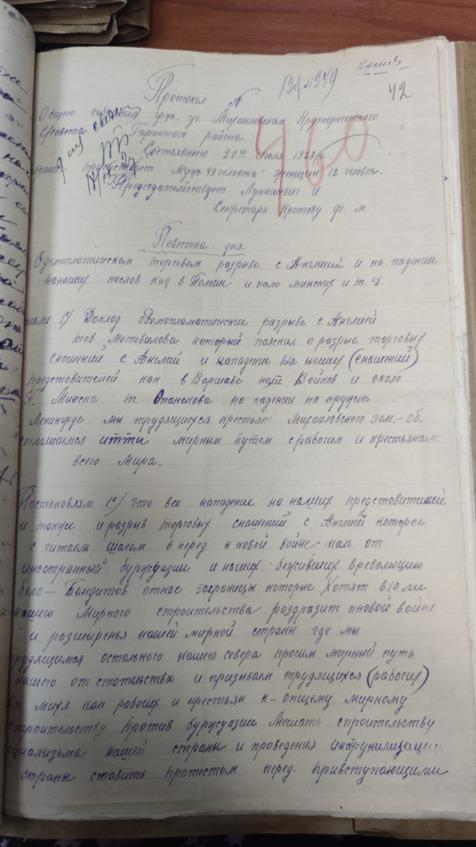 Копия
42
Протокол №
Общего собрания гр-н уч. Михайловская Круторитского
Совета Гаринского района.
460
Состоявшего 20го Июля 1927 г.
присутствует Муж. 49 человека женщин 12 человек.
Председательствует Лукошевич и
Секретарь Кротову Ф. М.
Повестка дня.
О демплотическом торговом разрыве с Англией и на падение
на наших послов как в Польше и коло минских и т. д.
1/ Доклад одемполоматические разрыве с Англией
тов. Мотовилова который пояснил о разрые торговых
сношении с Англий и нападени на наших (сношений)
предстовителей как в Варшаве т. Войков и около
г. Минска т. Опанскова на падении на
Ленинграде мы трудящиеся крестьяне Михаиловского зем.-об.
соглашаемся итти мирным путем с рабочим и крестьянам
всего Мира.
Постоновлям 1е/ Что все нападение на наших представителей
и также и разрыв торговых сношений с Англией которое
с читаем шагом в перед к новой войне как от
иностранный буружуазии и наших бежавших в революцию
бело-Бандитов от нас заграницы которые Хотят в 10 ле
нашего Мирного строительства раздразить к новой войне
и разширенья нашей мирной страны где мы
трудящимся остольного нашего севера просим мирный путь
нашего от статсльства и призываем трудящихся (рабочих)
михл. как рабочих и крестьян к общему мирному
строительству против буружуазии Мешать строительству
социализма нашей страны и проведения индрунилизаци
страны ставить протестом перед привступающими